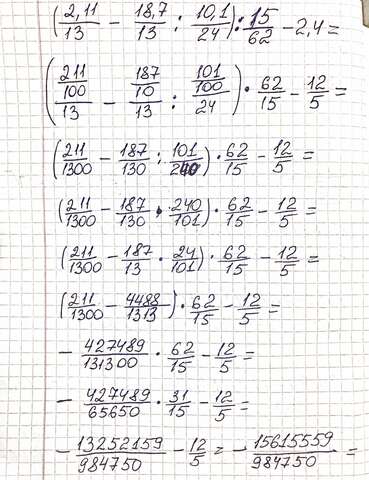 (2,11/13 − 18,7/13 : 10,1/24) : 15/62 − 2,4 =
(211/100/13 − 187/10/13 : 101/100/24) · 62/15 − 12/5 =
(211/1300 − 187/130 : 101/240) · 62/15 − 12/5 =
(211/1300 − 187/130 · 240/101) · 62/15 − 12/5 =
(211/1300 − 187/13 · 24/101) · 62/15 − 12/5 =
(211/1300 − 4488/1313) · 62/15 − 12/5 =
− 427489/131300 · 62/15 − 12/5 =
− 427489/65650 · 31/15 − 12/5 =
− 13252159/984750 − 12/5 = − 15615559/984750 =